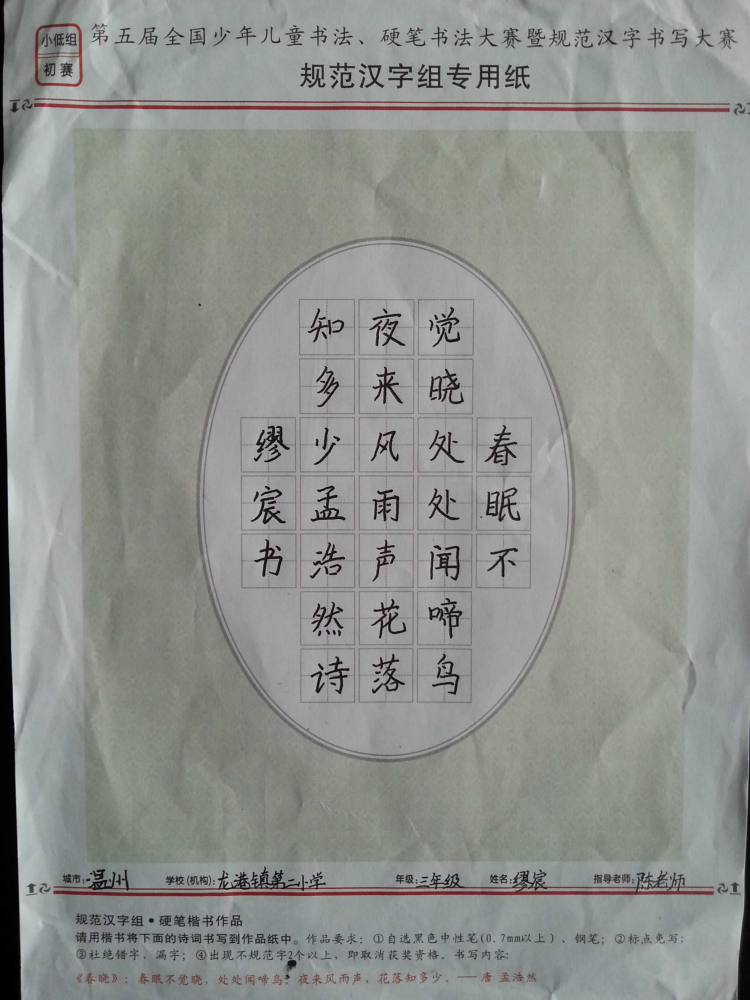 小低组
初赛
第五届全国少年儿童书法、硬笔书法大赛暨规范汉字书写大赛
规范汉字组专用纸
春眠不
觉晓处处闻啼鸟
夜来风雨声花落
知多少孟浩然诗
缪宸书
城市:温州 学校(机构):龙港镇第二小学 年级:三年级 姓名:缪宸 指导老师:陈老师
规范汉字组·硬笔楷书作品
请用楷书将下面的诗词书写到作品纸中。作品要求:①自选黑色中性笔(0.7mm以上)、钢笔;②标点免写;
③杜绝错字,漏字;④出现不规范字2个以上,即取消获奖资格。书写内容:
《春晓》:春眠不觉晓,处处闻啼鸟。夜来风雨声,花落知多少。——唐 孟浩然